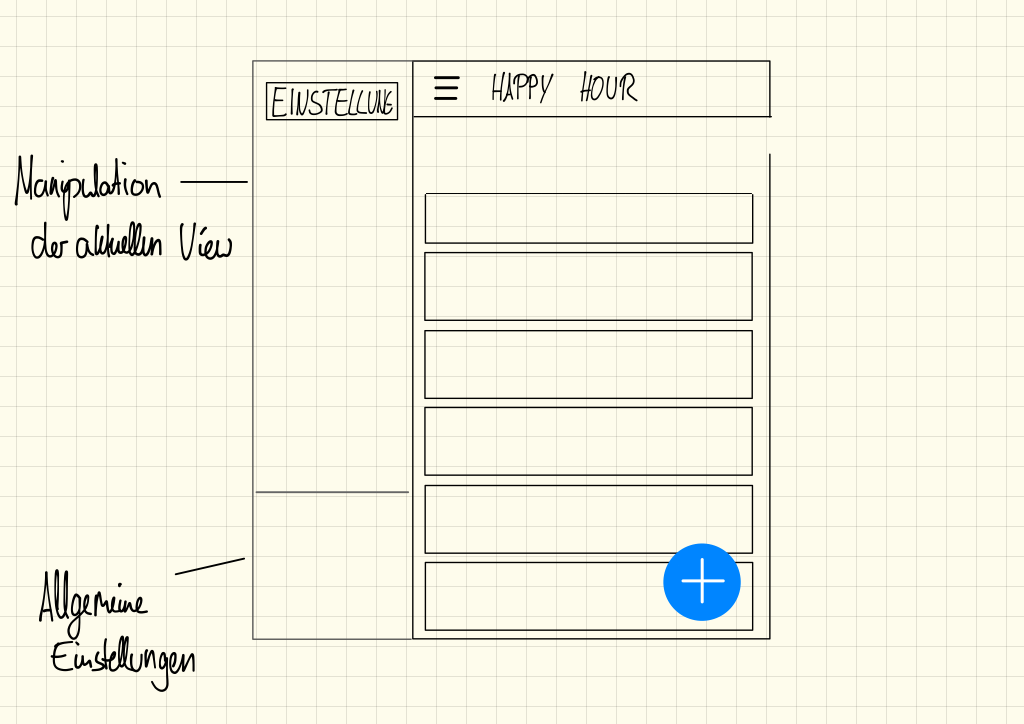 EINSTELLUNG
HAPPY HOUR
Manipulation
der aktuellen View
Allgemeine
Einstellungen